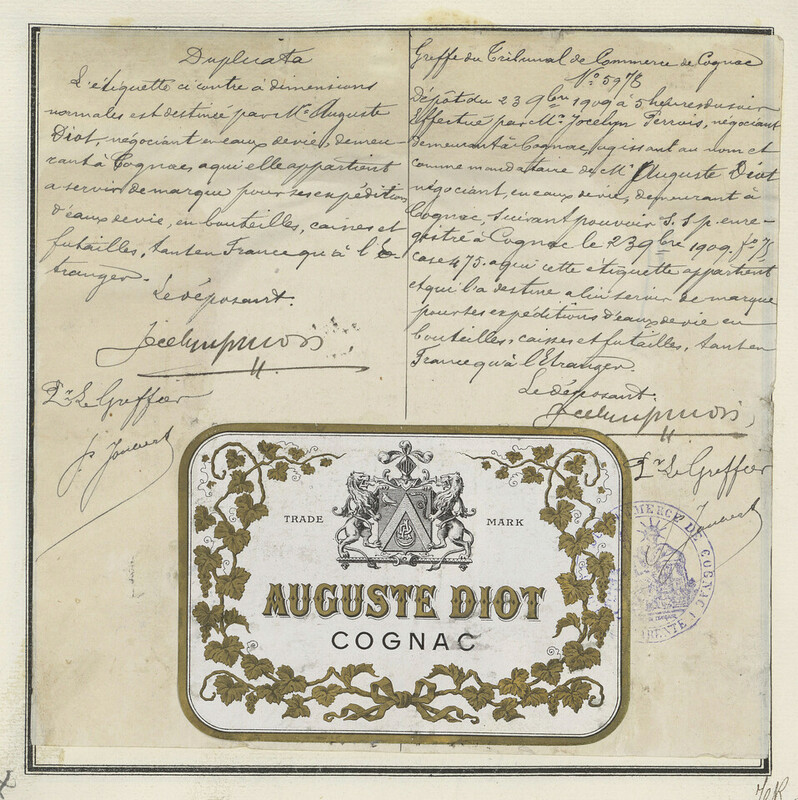 Duplicata
L'étiquette ci contre à dimensions
normales est destinée par Mr Auguste
Diot, négociant en eaux de vie, demeu-
rant à Cognac, a qui elle appartient
a servir de marque pour ses expéditions
d'eaux de vie, en bouteilles, caisses et
futailles, tant en France qu'à l'É
tranger.
Le déposant.
Pr Le Greffier
Greffe du Tribunal de Commerce de Cognac
Dépôt du 23 9bre 1909 à 5 heures du soir
Effectué par Mr Jocelyn Perrois, négociant
demeurant à Cognac, agissant au nom et
comme mandataire de Mr Auguste Diot
négociant, en eaux de vie, demeurant à
Cognac, suivant pouvoir S.S.p. enre-
gistré à Cognac le 23 9bre 1909,
case 475. a qui cette etiquette appartient
et qui l'a destine a lui servir de marque
pour ses expéditions d'eaux de vie en
bouteilles, caisses et futailles, tant en
France qu'à l'Etranger.
Le déposant.
Pr Le Greffier
TRADE MARK
AUGUSTE DIOT
COGNAC
COMMERCE DE COGNAC